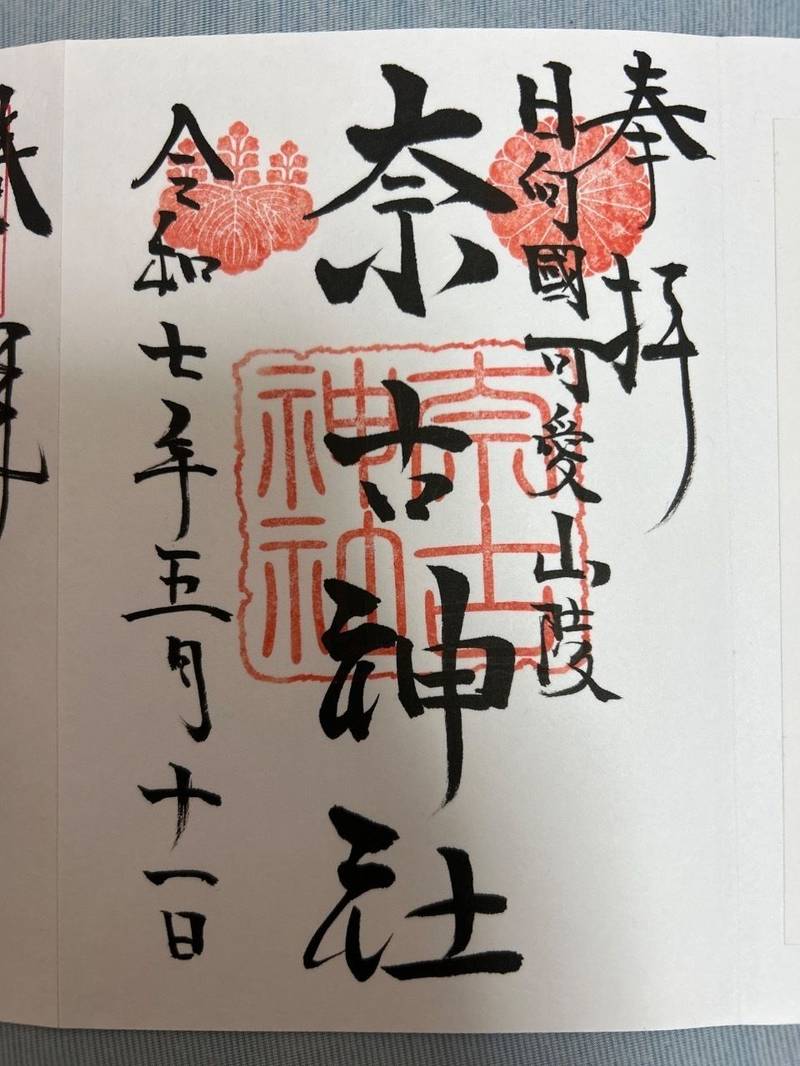 奉拝
日向國可愛山陵
奈古神社
奈古神社
令和七年五月十一日
拝